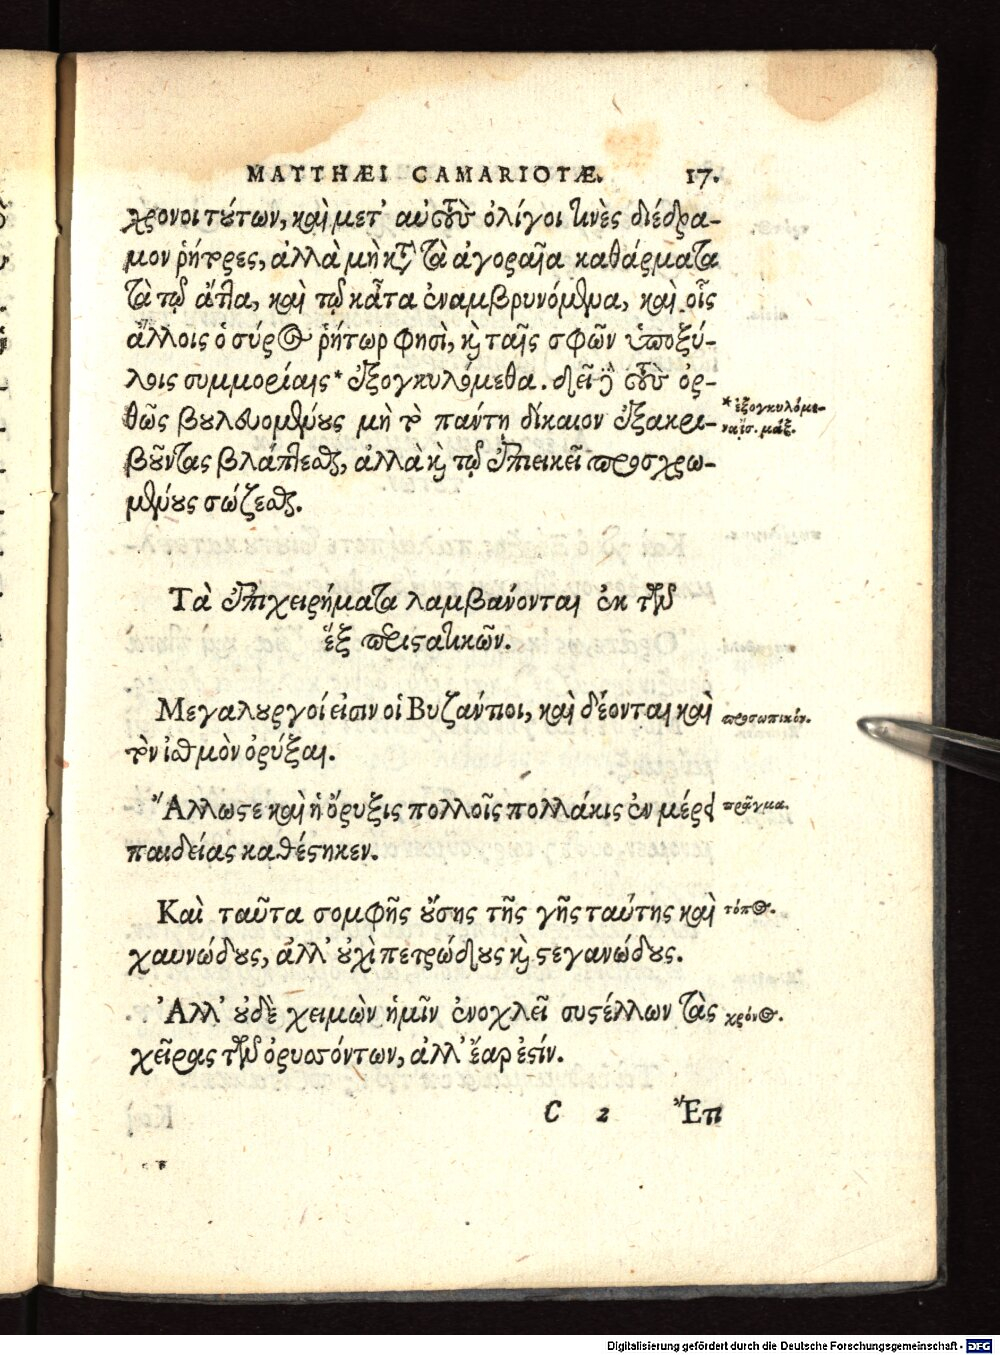 MATTHÆI CAMARIOTÆ. 17.
χρονοι τούτων, καὶ μετ' αὐτοὺς ὀλίγοι τινὲς διέδρα-
μον ῥήτορες, ἀλλὰ μὴ κατὰ τὰ ἀγοραῖα καθάρματα
τὰ τῷ ἄττα, καὶ τῷ κᾆτα ἐναμβρυνόμενα, καὶ οἷς
ἄλλοις ὁ σύρος ῥήτωρ φησὶ, καὶ ταῖς σφῶν ὑποξύ-
λοις συμμορίαις* ἐξογκυλόμεθα. δεῖ γὰρ τοὺς ὀρ-
θῶς βουλευομένους μὴ τὸ πάντη δίκαιον ἐξακρι-
βοῦντας βλάπτεσθαι, ἀλλὰ καὶ τῷ ἐπιεικεῖ προσχρω-
μένους σώζεσθαι.
* ἐξογκυλόμε-
ναι
Τὰ ἐπιχειρήματα λαμβάνονται ἐκ τῶν
ἓξ περιστατικῶν.
Μεγαλουργοί εἰσιν οἱ Βυζάντιοι, καὶ δέονται καὶ
τὸν ἰσθμὸν ὀρύξαι.
προσωπικόν.
Ἄλλωστε καὶ ἡ ὄρυξις πολλοῖς πολλάκις ἐν μέρει
παιδείας καθέστηκεν.
πρᾶγμα.
Καὶ ταῦτα σομφῆς οὔσης τῆς γῆς ταύτης καὶ
χαυνώδους, ἀλλ' οὐχὶ πετρώδους καὶ στεγανώδους.
τόπος.
Ἀλλ' οὐδὲ χειμὼν ἡμῖν ἐνοχλεῖ συστέλλων τὰς
χεῖρας τῶν ὀρυσσόντων, ἀλλ' ἔαρ ἐστίν.
χρόνος.
C 2 Ἔπι
Digitalisierung gefördert durch die Deutsche Forschungsgemeinschaft - DFG